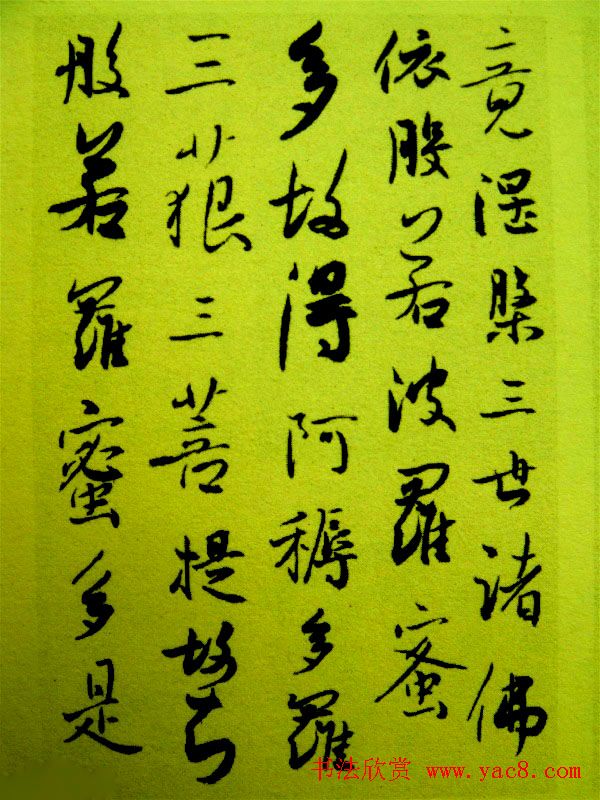 竟涅槃三世諸佛
依般若波羅蜜
多故得阿耨多羅
三藐三菩提故知
般若羅蜜多是
书法欣赏 www.yac8.com